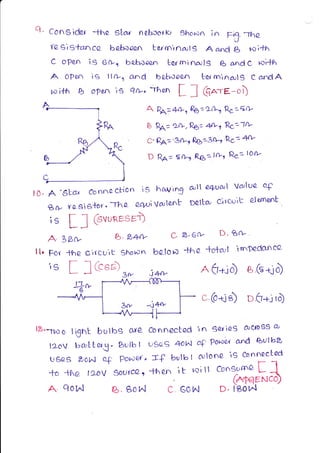 9. Consider the star network shown in Fig The
resistance between terminals A and B with
C open is 6Ω, between terminals B and C with
A open is 11Ω, and between terminals C and A
with B open is 9Ω. Then [ ] (GATE-01)
A
RA
RB
RC
B
C
A. RA=4Ω, RB=2Ω, RC=5Ω
B RA=2Ω, RB=4Ω, RC=7Ω
C. RA=3Ω, RB=3Ω, RC=4Ω
D RA=5Ω, RB=1Ω, RC=10Ω
10. A 'Star Connection is having all equal value of
8Ω resister. The equivalent Delta circuit element
is [ ] (SVURESET)
A 32Ω B. 24Ω C 2.6Ω D. 8Ω
11. For the circuit shown below the total impedance
is [ ] (CSE)
3Ω j4Ω
3Ω -j4Ω
A (7+j0) B. (5+j0)
C. (0+j8) D. (7+j10)
12. Two light bulbs are connected in series across a
120V battery. Bulb 1 uses 40W of power and Bulb2
uses 20W of power. If bulb 1 alone is connected
to the 120V source, then it will consume [ ]
(APGENCO)
A 90W B. 80W C. 60W D. 180W